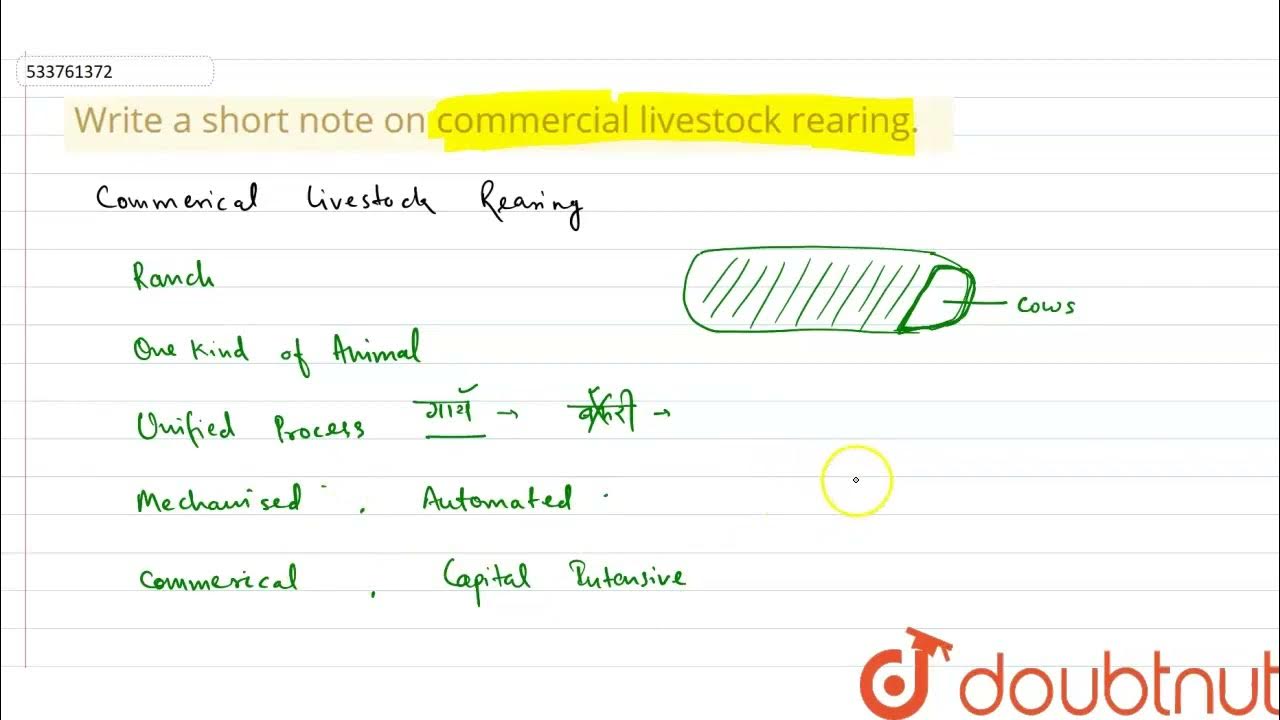 533761372
Write a short note on commercial livestock rearing.
Commerical Livestock Rearing
Ranch
cows
One Kind of Animal
Unified Process गाय → बकरी →
Mechanised , Automated
Commerical , Capital Intensive
doubtnut